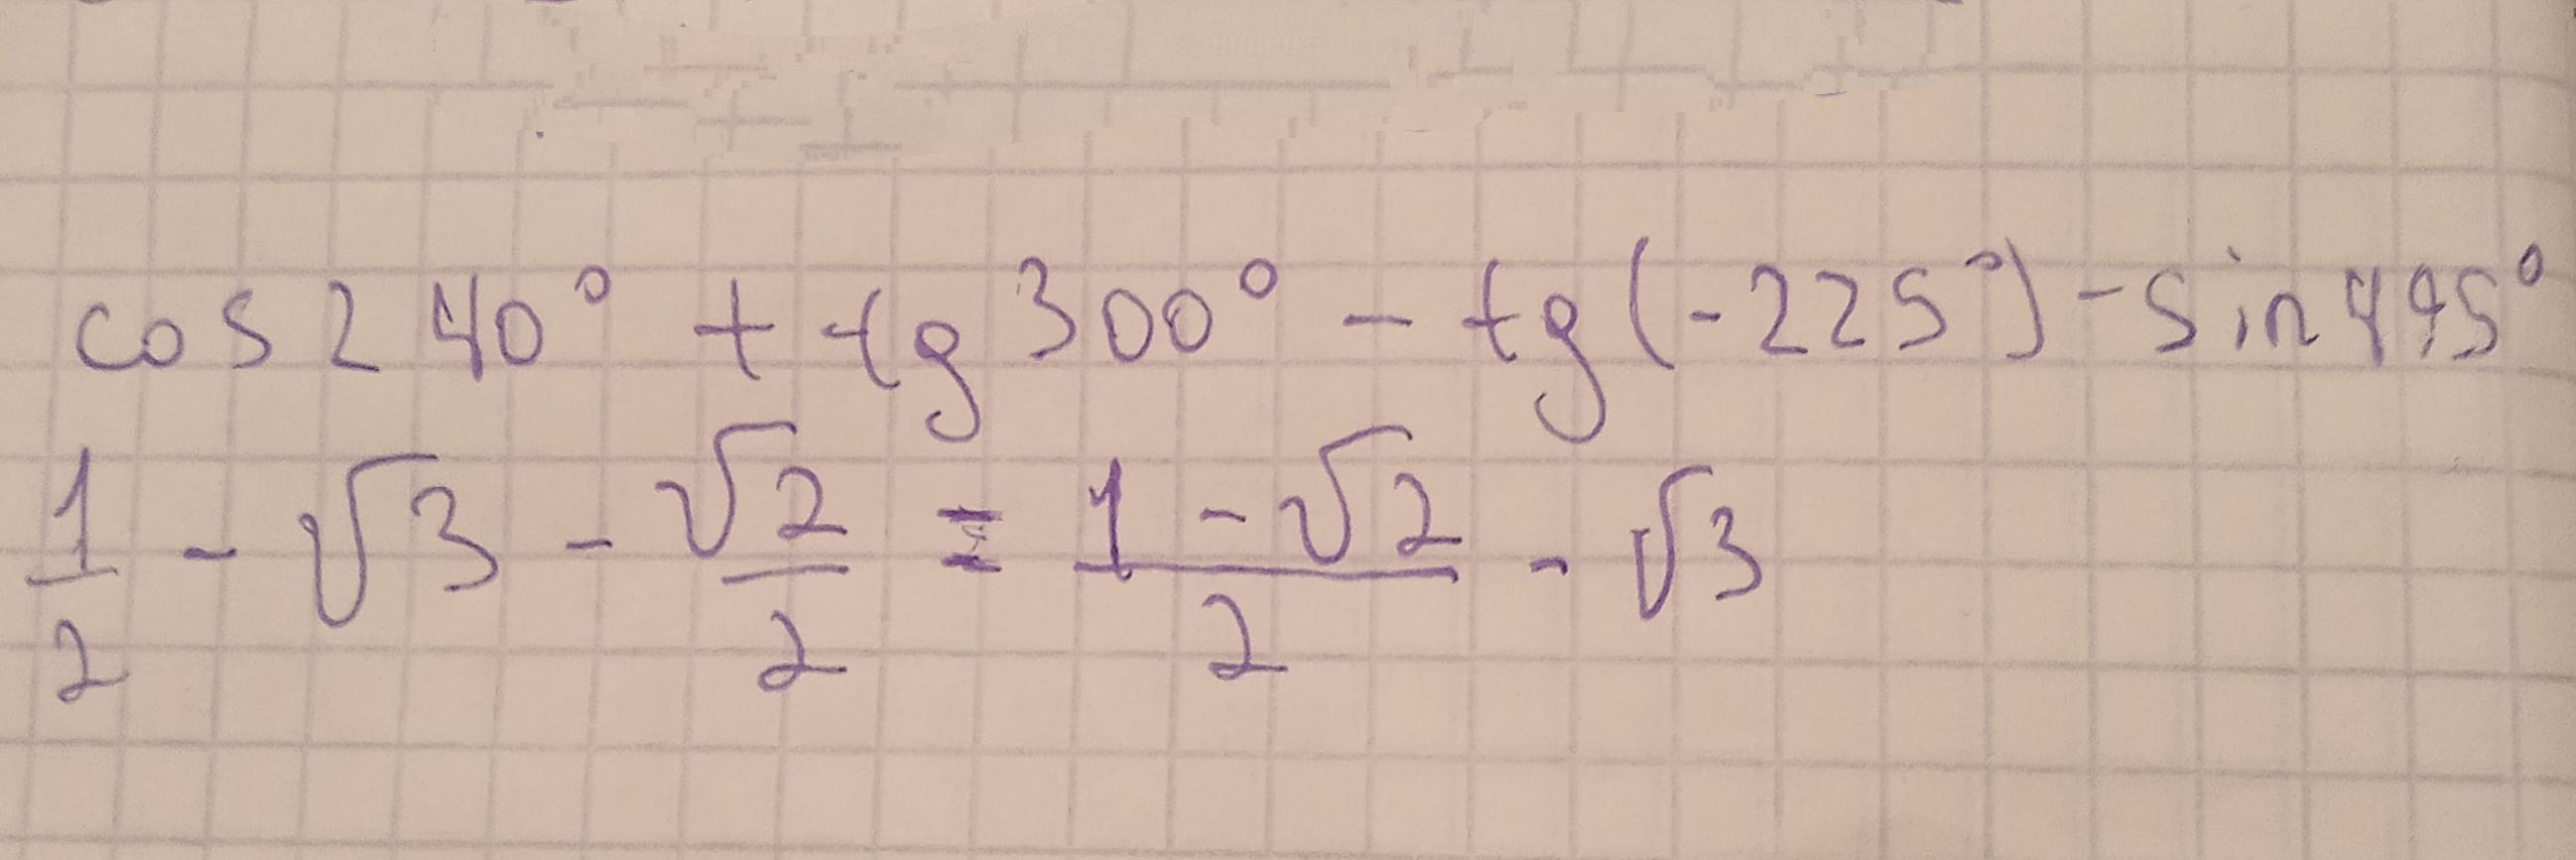 cos 240° + tg 300° - tg(-225°) - sin 495°
1/2 - √3 - √2/2 = (1 - √2)/2 - √3